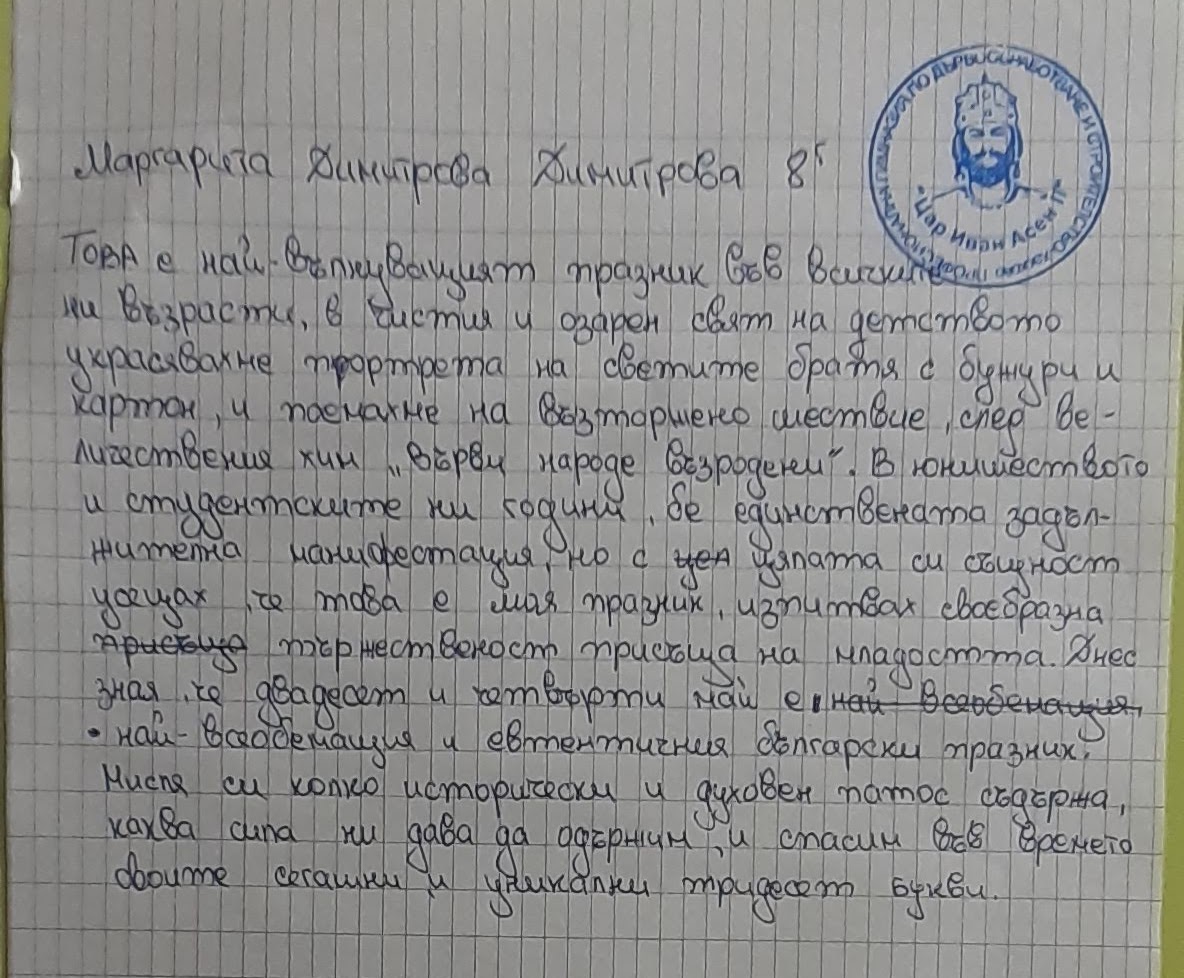 Маргарита Димитрова Димитрова 8г
"Цар Иван Асен II"
Това е най-вълнуващият празник във всички
ни възрасти, в чистия и озарен свят на детството
украсявахме портрета на светите братя с бужури и
картон, и поемахме на възторжено шествие, след ве-
личествения химн „Върви народе възродени". В юнишеството
и студентските ни години, бе единствената задъл-
жителна манифестация, но с цел цялата си същност
усещах, че това е моя празник, изпитвах своебразна
присъща тържественост присъща на младостта. Днес
зная, че двадесет и четвърти май е най всеобемащия,
най-всеобемащия и евтентичния български празник.
Мисля си колко исторически и духовен патос съдържа,
каква сила ни дава да одържим, и спасим във времето
своите сегашни и уникални тридесет букви.